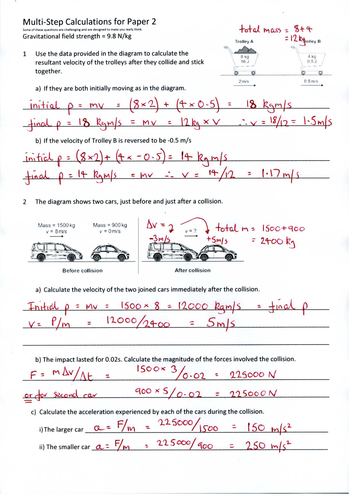 Multi-Step Calculations for Paper 2
Some of these questions are challenging and are designed to make you really think.
Gravitational field strength = 9.8 N/kg
total mass = 8+4
= 12kg
Trolley A
Trolley B
8 kg
4 kg
2 m/s
0.5 m/s
1 Use the data provided in the diagram to calculate the
resultant velocity of the trolleys after they collide and stick
together.
a) If they are both initially moving as in the diagram.
initial p = mv = (8×2) + (4×0.5) = 18 kgm/s
final p = 18 kgm/s = mv = 12kg × V ∴ v = 18/12 = 1.5m/s
b) If the velocity of Trolley B is reversed to be -0.5 m/s
initial p = (8×2) + (4×-0.5) = 14 kgm/s
final p = 14 kgm/s = mv ∴ v = 14/12 = 1.17m/s
2 The diagram shows two cars, just before and just after a collision.
Mass = 1500kg
v = 8m/s
Mass = 900kg
v = 0m/s
Δv = ?
-3m/s
v = ?
+5m/s
total m = 1500+900
= 2400 kg
Before collision
After collision
a) Calculate the velocity of the two joined cars immediately after the collision.
Initial p = mv = 1500 × 8 = 12000 kgm/s = final p
V = P/m = 12000/2400 = 5m/s
b) The impact lasted for 0.02s. Calculate the magnitude of the forces involved the collision.
F = mΔv/Δt = 1500 × 3/0.02 = 225000 N
or for second car 900 × 5/0.02 = 225000N
c) Calculate the acceleration experienced by each of the cars during the collision.
i) The larger car a = F/m = 225000/1500 = 150 m/s²
ii) The smaller car a = F/m = 225000/900 = 250 m/s²